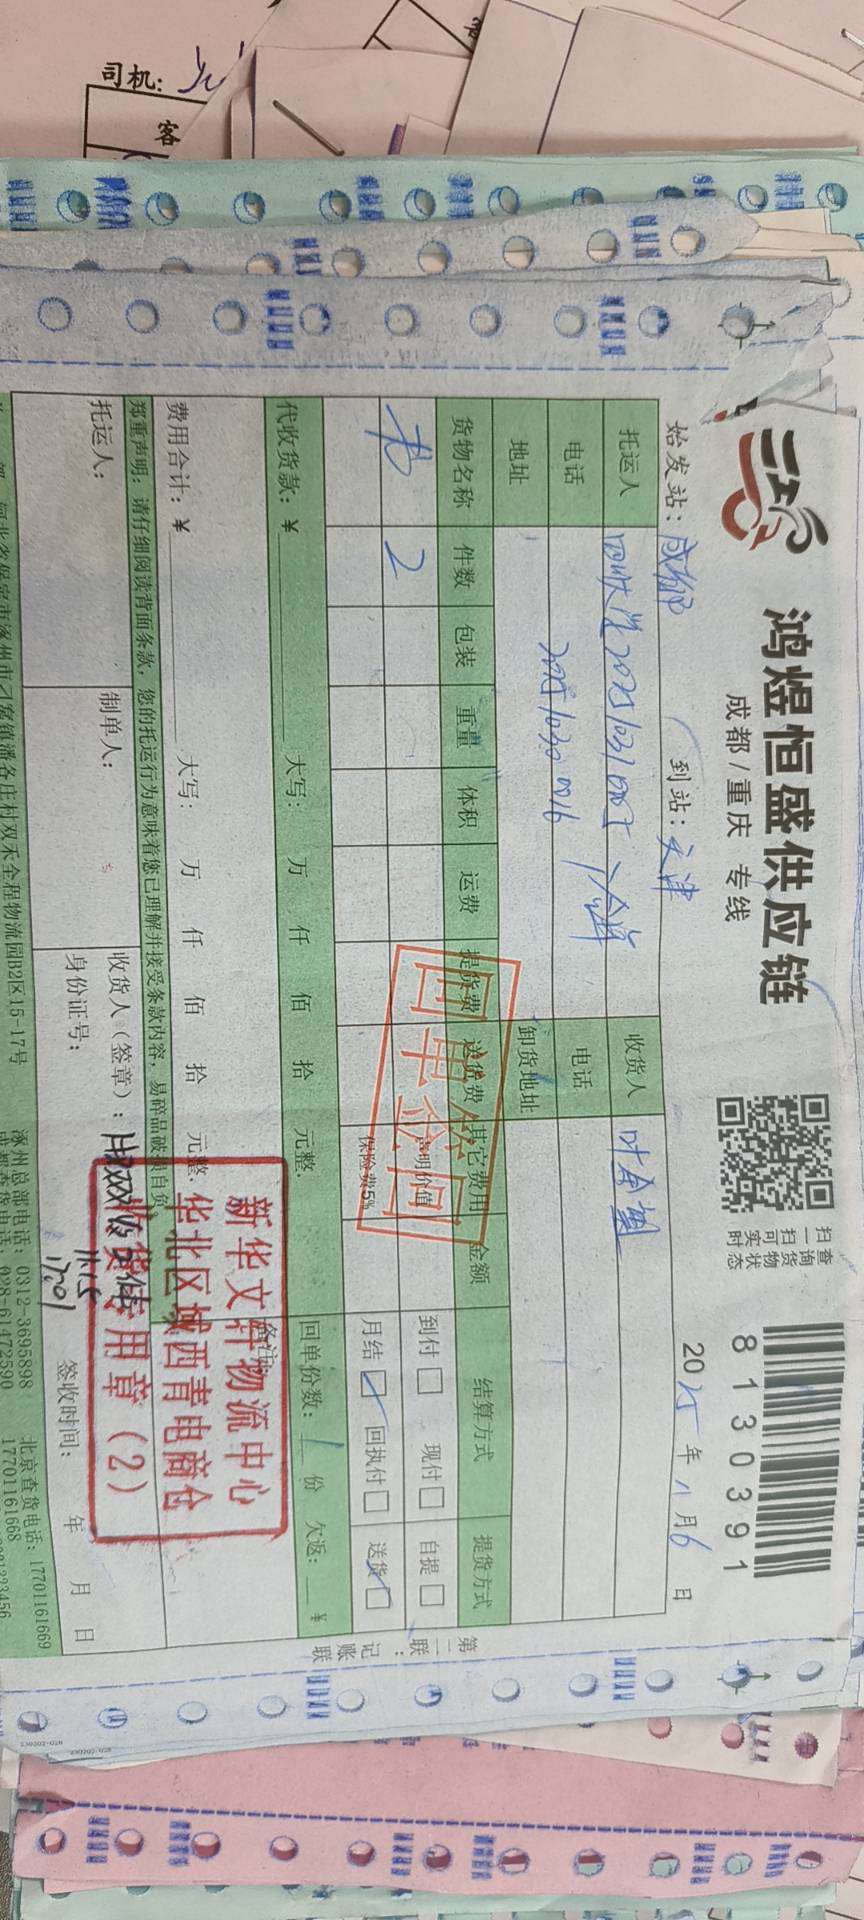 司机:
客
鸿煜恒盛供应链
成都/重庆 专线
扫一扫可实时
查询货物状态
8130391
始发站: 成都
到站: 天津
2025年11月6日
托运人
收货人
电话
20251030 0016
电话
地址
卸货地址
货物名称 件数 包装 重量 体积 运费 提货费 送货费 其它费用 金额 结算方式 提货方式
书 2
声明价值
到付□ 现付□ 自提□
保险费5%
月结□ 回执付□ 送货□
回单份数: 1 份 欠返: ¥
代收货款: ¥ 大写: 万 仟 佰 拾 元整.
备注:
费用合计: ¥ 大写: 万 仟 佰 拾 元整.
郑重声明: 请仔细阅读背面条款, 您的托运行为意味着您已理解并接受条款内容, 易碎品破损自负
托运人:
制单人:
收货人(签章):
身份证号:
签收时间: 年 月 日
11.15
17201
新华文轩物流中心
华北区域西青电商仓
收货专用章(2)
第二联: 记账联
河北省保定市涿州市刁窝镇潘各庄村双禾全程物流园B2区15-17号
涿州总部电话: 0312-3695898 北京查货电话: 17701161669
成都查货电话: 028-61472590 17701161668